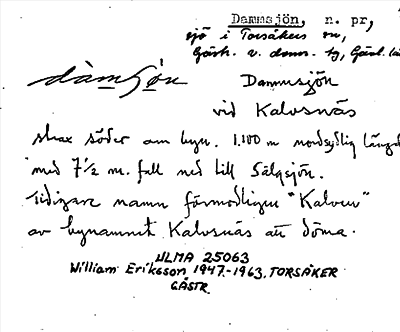 Dammsjön, n. pr,
sjö i Torsåkers sn,
Gästr. v. doms. tg, Gävl. lä
dàmʃön Dammsjön
vid Kalvsnäs
strax söder om byn. 1.100 m nordsydlig längd
med 7½ m. fall ned till Sälgsjön.
Tidigare namn förmodligen "Kalven"
av bynamnet Kalvsnäs att döma.
ULMA 25063
William Eriksson 1947-1963. TORSÅKER
GÄSTR.